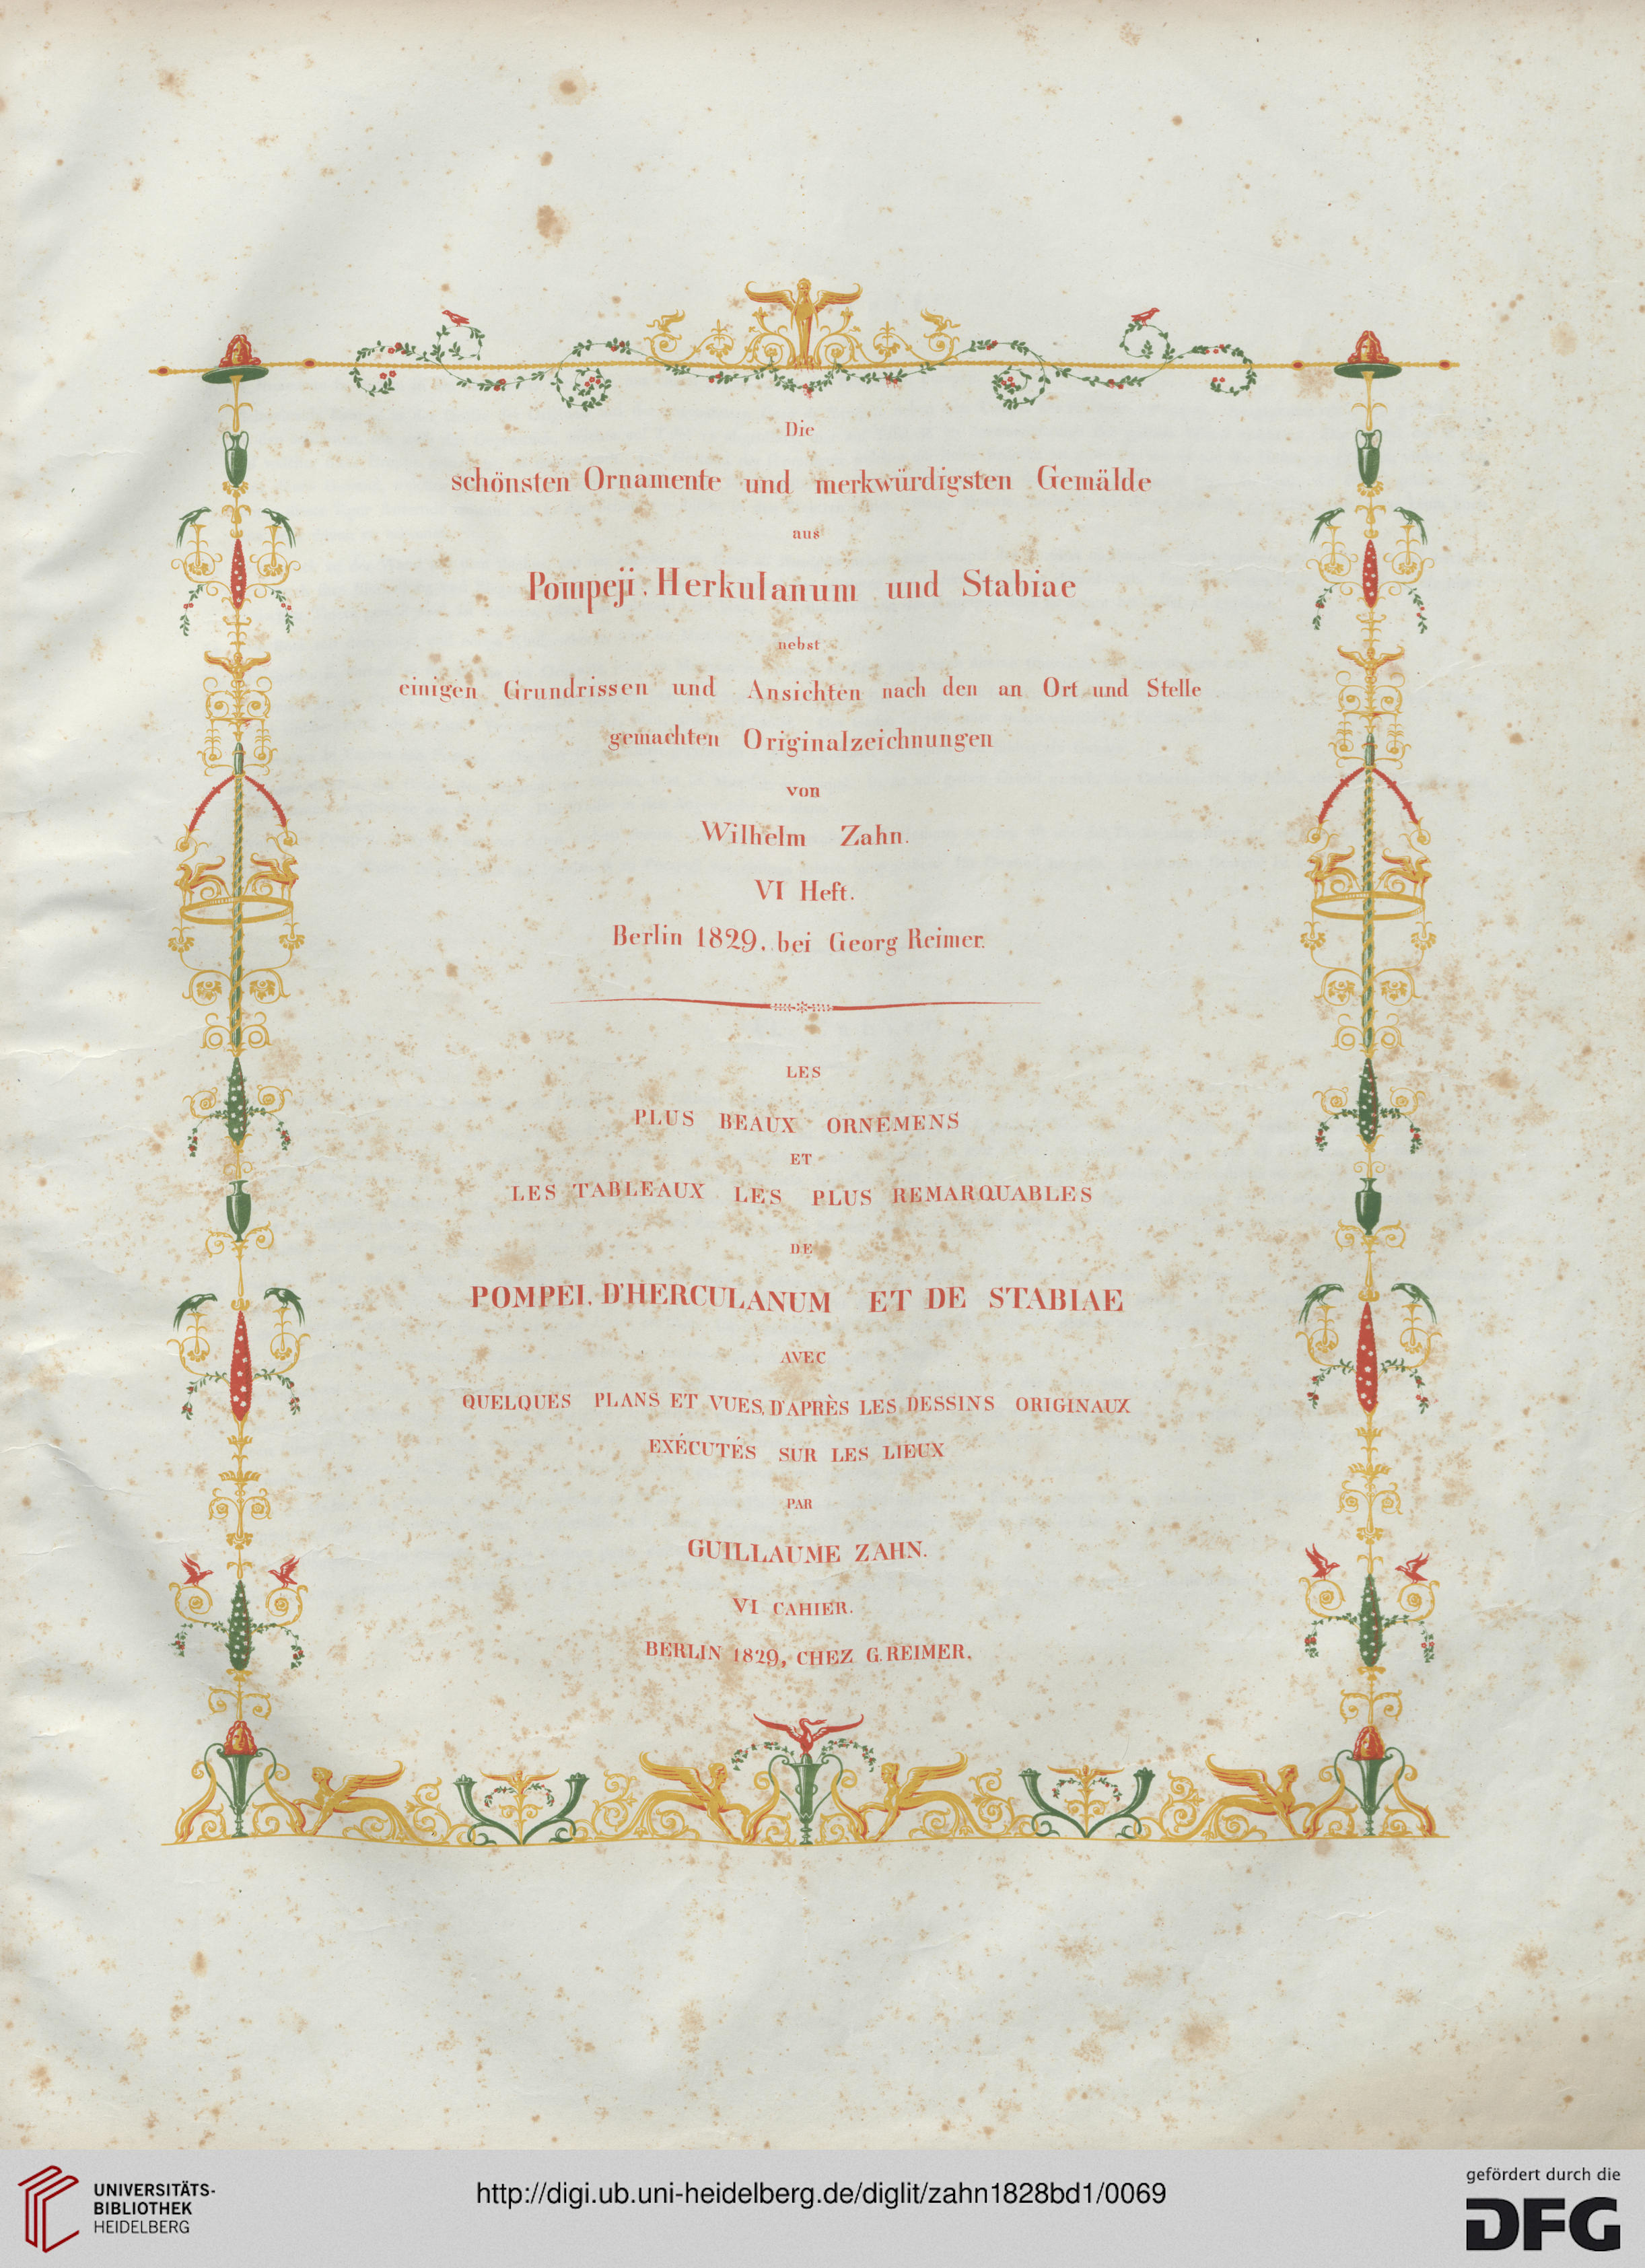 Die
schönsten Ornamente und merkwürdigsten Gemälde
aus
Pompeji, Herkulanum und Stabiae
nebst
einigen Grundrissen und Ansichten nach den an Ort und Stelle
gemachten Originalzeichnungen
von
Wilhelm Zahn.
VI Heft.
Berlin 1829, bei Georg Reimer.
LES
PLUS BEAUX ORNEMENS
ET
LES TABLEAUX LES PLUS REMARQUABLES
DE
POMPEI, D'HERCULANUM ET DE STABIAE
AVEC
QUELQUES PLANS ET VUES, D'APRÈS LES DESSINS ORIGINAUX
EXÉCUTÉS SUR LES LIEUX
PAR
GUILLAUME ZAHN.
VI CAHIER.
BERLIN 1829, CHEZ G. REIMER.
UNIVERSITÄTS-
BIBLIOTHEK
HEIDELBERG
http://digi.ub.uni-heidelberg.de/diglit/zahn1828bd1/0069
gefördert durch die
DFG